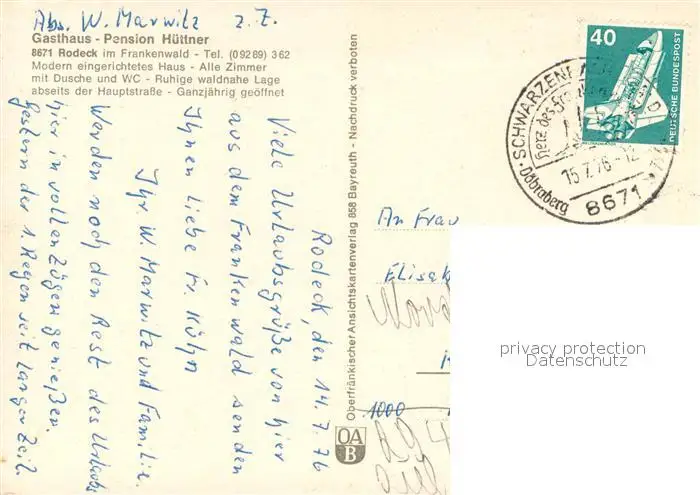 Abs. W. Marwitz z. Z.
Gasthaus - Pension Hüttner
8671 Rodeck im Frankenwald - Tel. (09289) 362
Modern eingerichtetes Haus - Alle Zimmer
mit Dusche und WC - Ruhige waldnahe Lage
abseits der Hauptstraße - Ganzjährig geöffnet
Rodeck, den 14.7.76
Viele Urlaubsgrüße von hier
aus dem Frankenwald senden
Ihnen liebe Fr. Köhn
Ihr W. Marwitz und Familie.
Werden noch den Rest des Urlaubs
hier in vollen Zügen genießen.
Gestern der 1. Regen seit langer Zeit.
Oberfränkischer Ansichtskartenverlag 858 Bayreuth - Nachdruck verboten
OA
B
40
DEUTSCHE BUNDESPOST
SCHWARZENBACH
Herz des
15.7.76-12
Döbraberg
8671
An Frau
Elisab
1000
privacy protection
Datenschutz